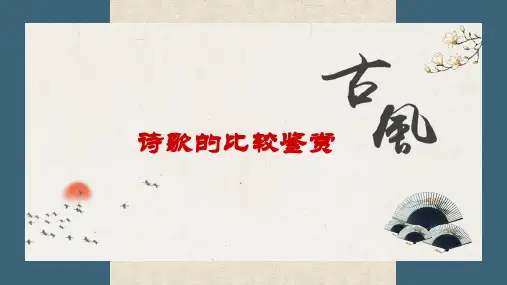 诗歌的比较鉴赏
古風